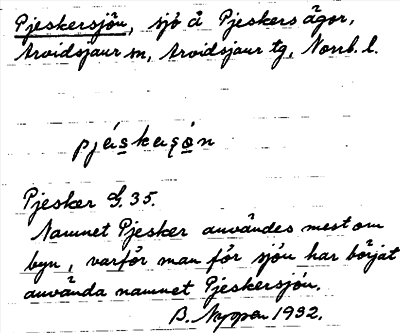 Pjeskersjön, sjö å Pjeskers ägor,
Arvidsjaur sn, Arvidsjaur tg, Norrb. l.
Pjesker G. 35.
Namnet Pjesker användes mest om
byn, varför man för sjön har börjat
använda namnet Pjeskersjön.
B. 1932.